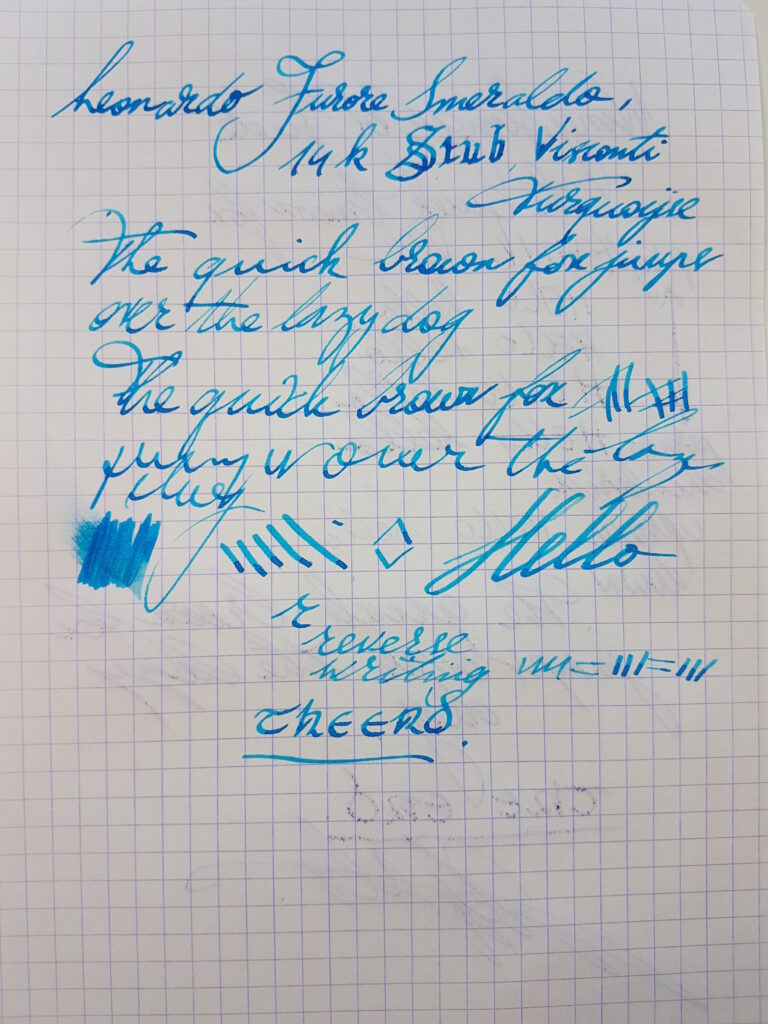 Leonardo Furore Smeraldo,
14k Stub, Visconti
Turquoise
The quick brown fox jumps
over the lazy dog
The quick brown fox
jumps over the lazy
dog
Hello
r
reverse
writing
CHEERS.